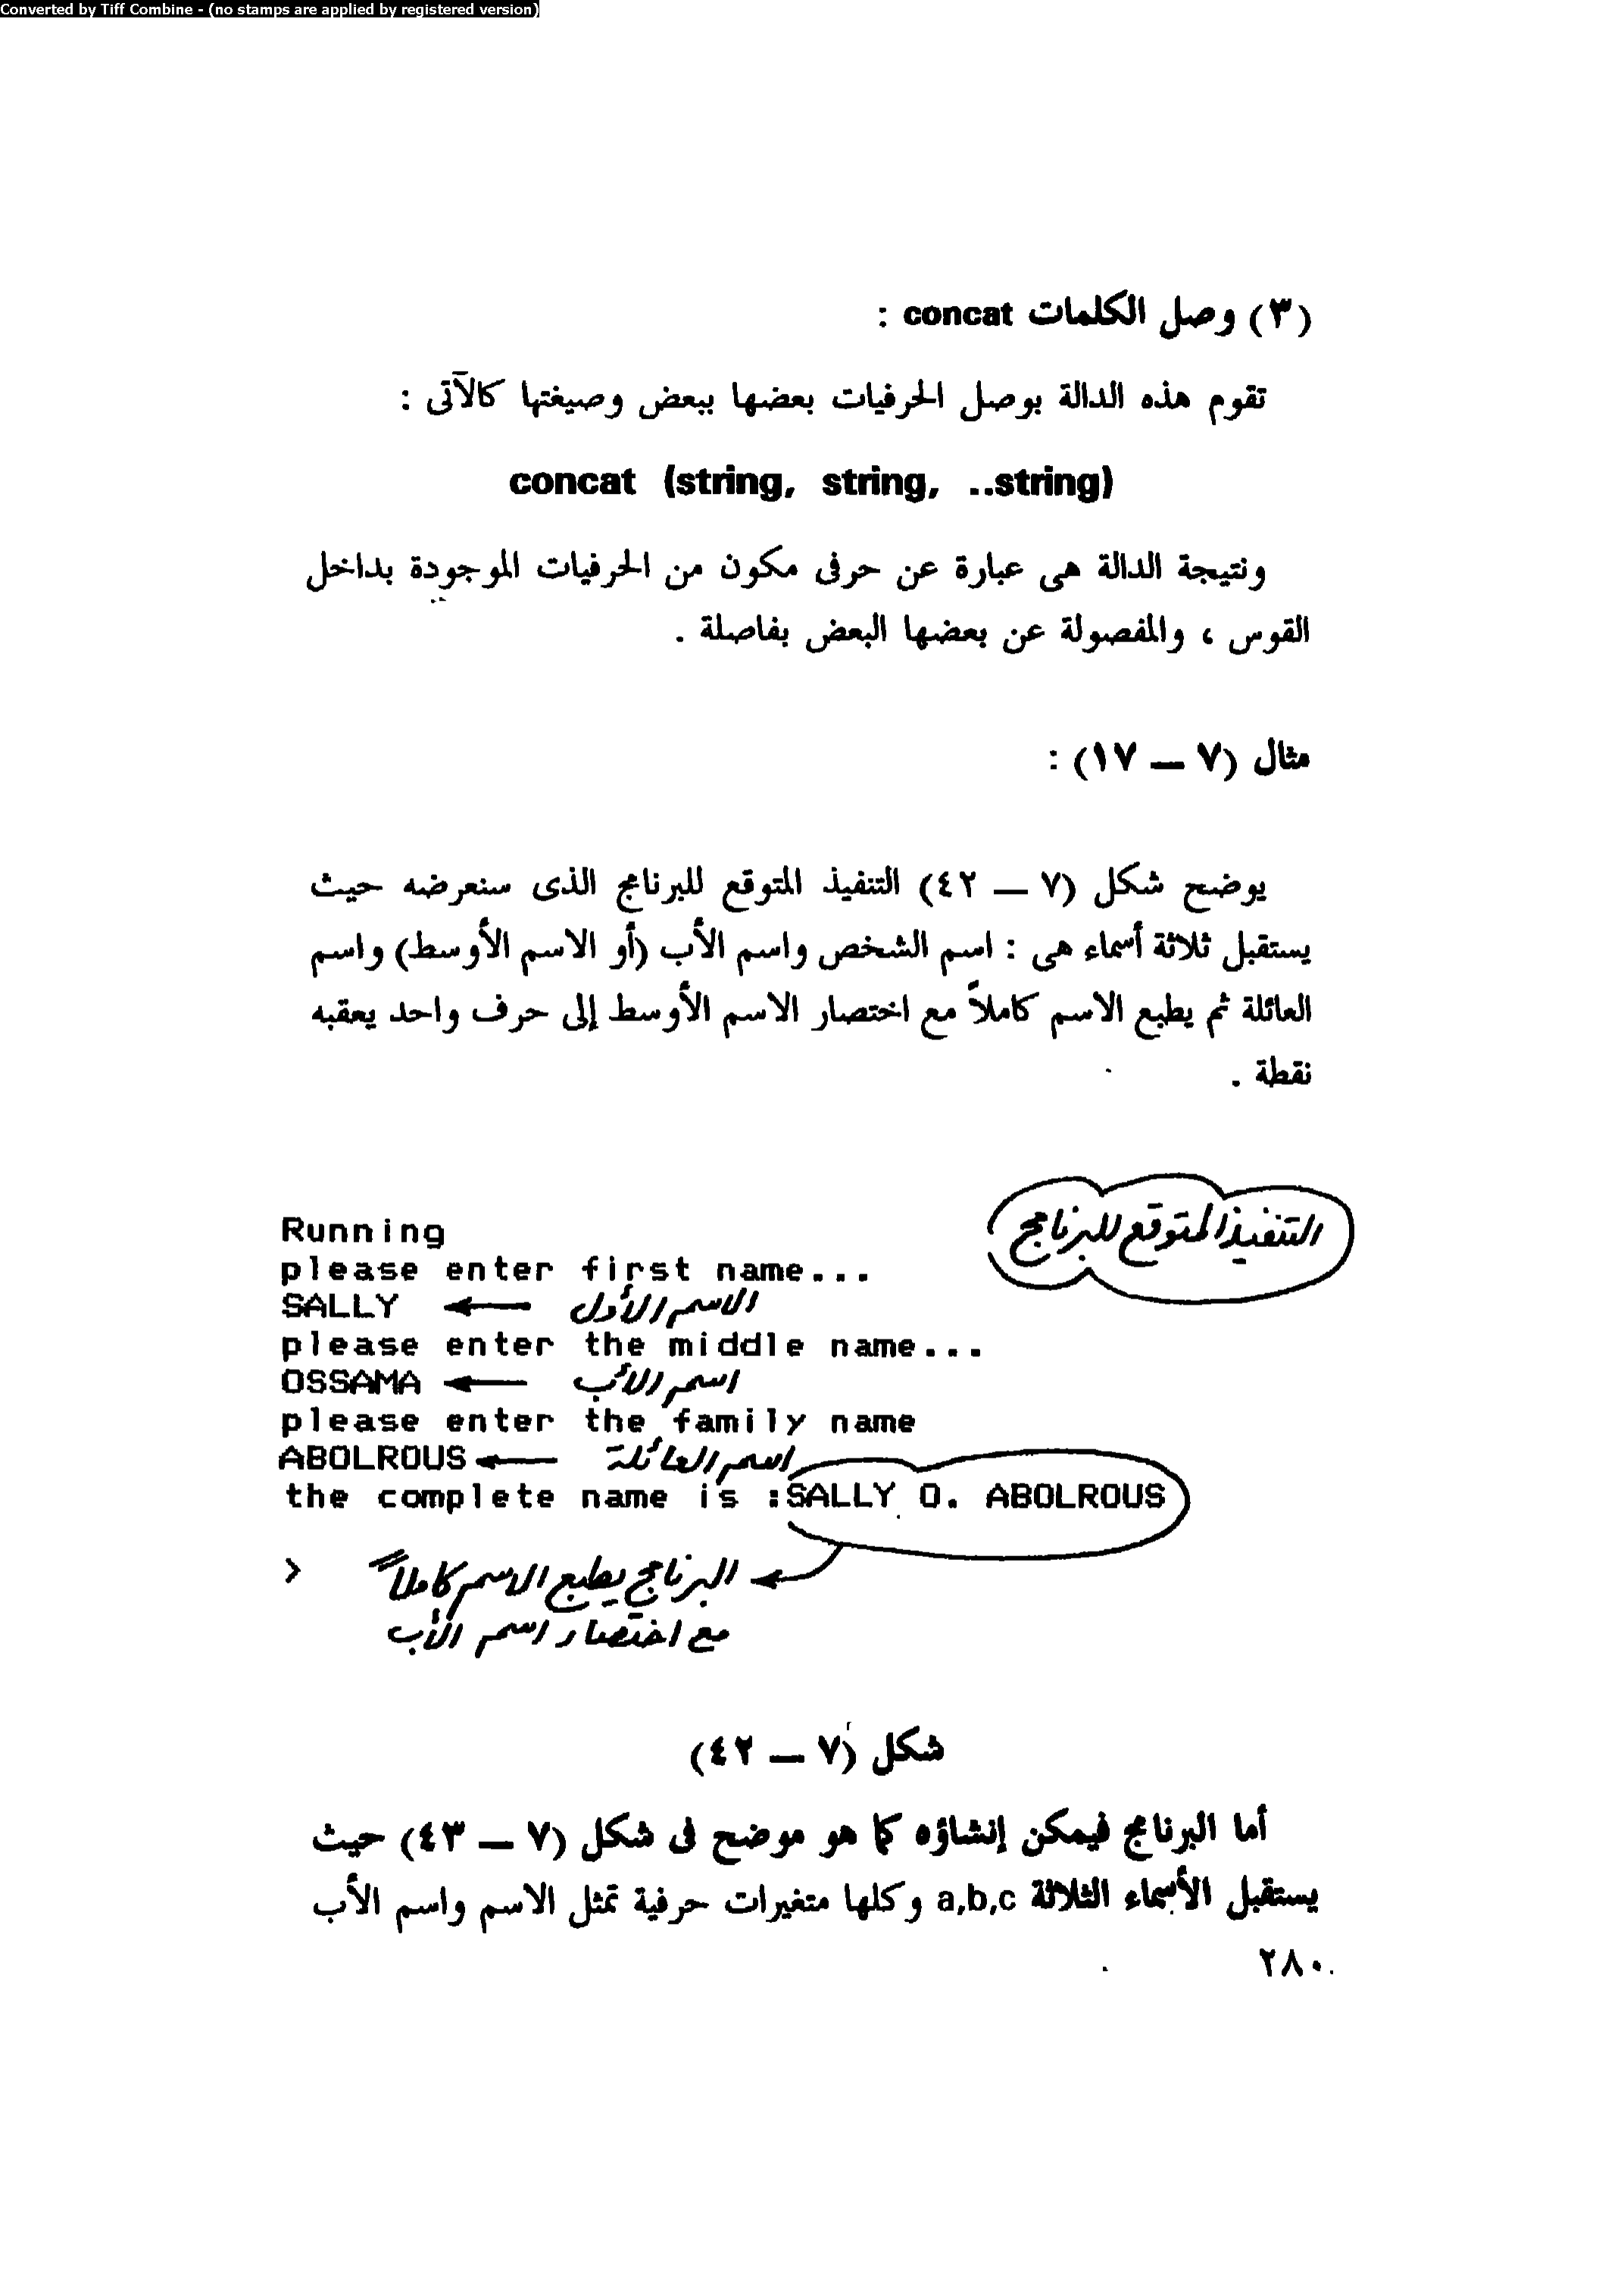 Converted by Tiff Combine - (no stamps are applied by registered version)
(٣) وصل الكلمات concat :
تقوم هذه الدالة بوصل الحرفيات بعضها ببعض وصيغتها كالآتى :
concat (string, string, ..string)
ونتيجة الدالة هى عبارة عن حرفى مكون من الحرفيات الموجودة بداخل
القوس ، والمفصولة عن بعضها البعض بفاصلة .
مثال (٧ ــ ١٧) :
يوضح شكل (٧ ــ ٤٢) التنفيذ المتوقع للبرنامج الذى سنعرضه حيث
يستقبل ثلاثة أسماء هى : اسم الشخص واسم الأب (أو الاسم الأوسط) واسم
العائلة ثم يطبع الاسم كاملاً مع اختصار الاسم الأوسط إلى حرف واحد يعقبه
نقطة .
التنفيذ المتوقع للبرنامج
Running
please enter first name...
SALLY ← الاسم الأول
please enter the middle name...
OSSAMA ← اسم الأب
please enter the family name
ABOLROUS ← اسم العائلة
the complete name is :SALLY O. ABOLROUS
> البرنامج يطبع الاسم كاملاً
مع اختصار اسم الأب
شكل (٧ ــ ٤٢)
أما البرنامج فيمكن إنشاؤه كما هو موضح فى شكل (٧ ــ ٤٣) حيث
يستقبل الأسماء الثلاثة a,b,c وكلها متغيرات حرفية تمثل الاسم واسم الأب
٢٨٠